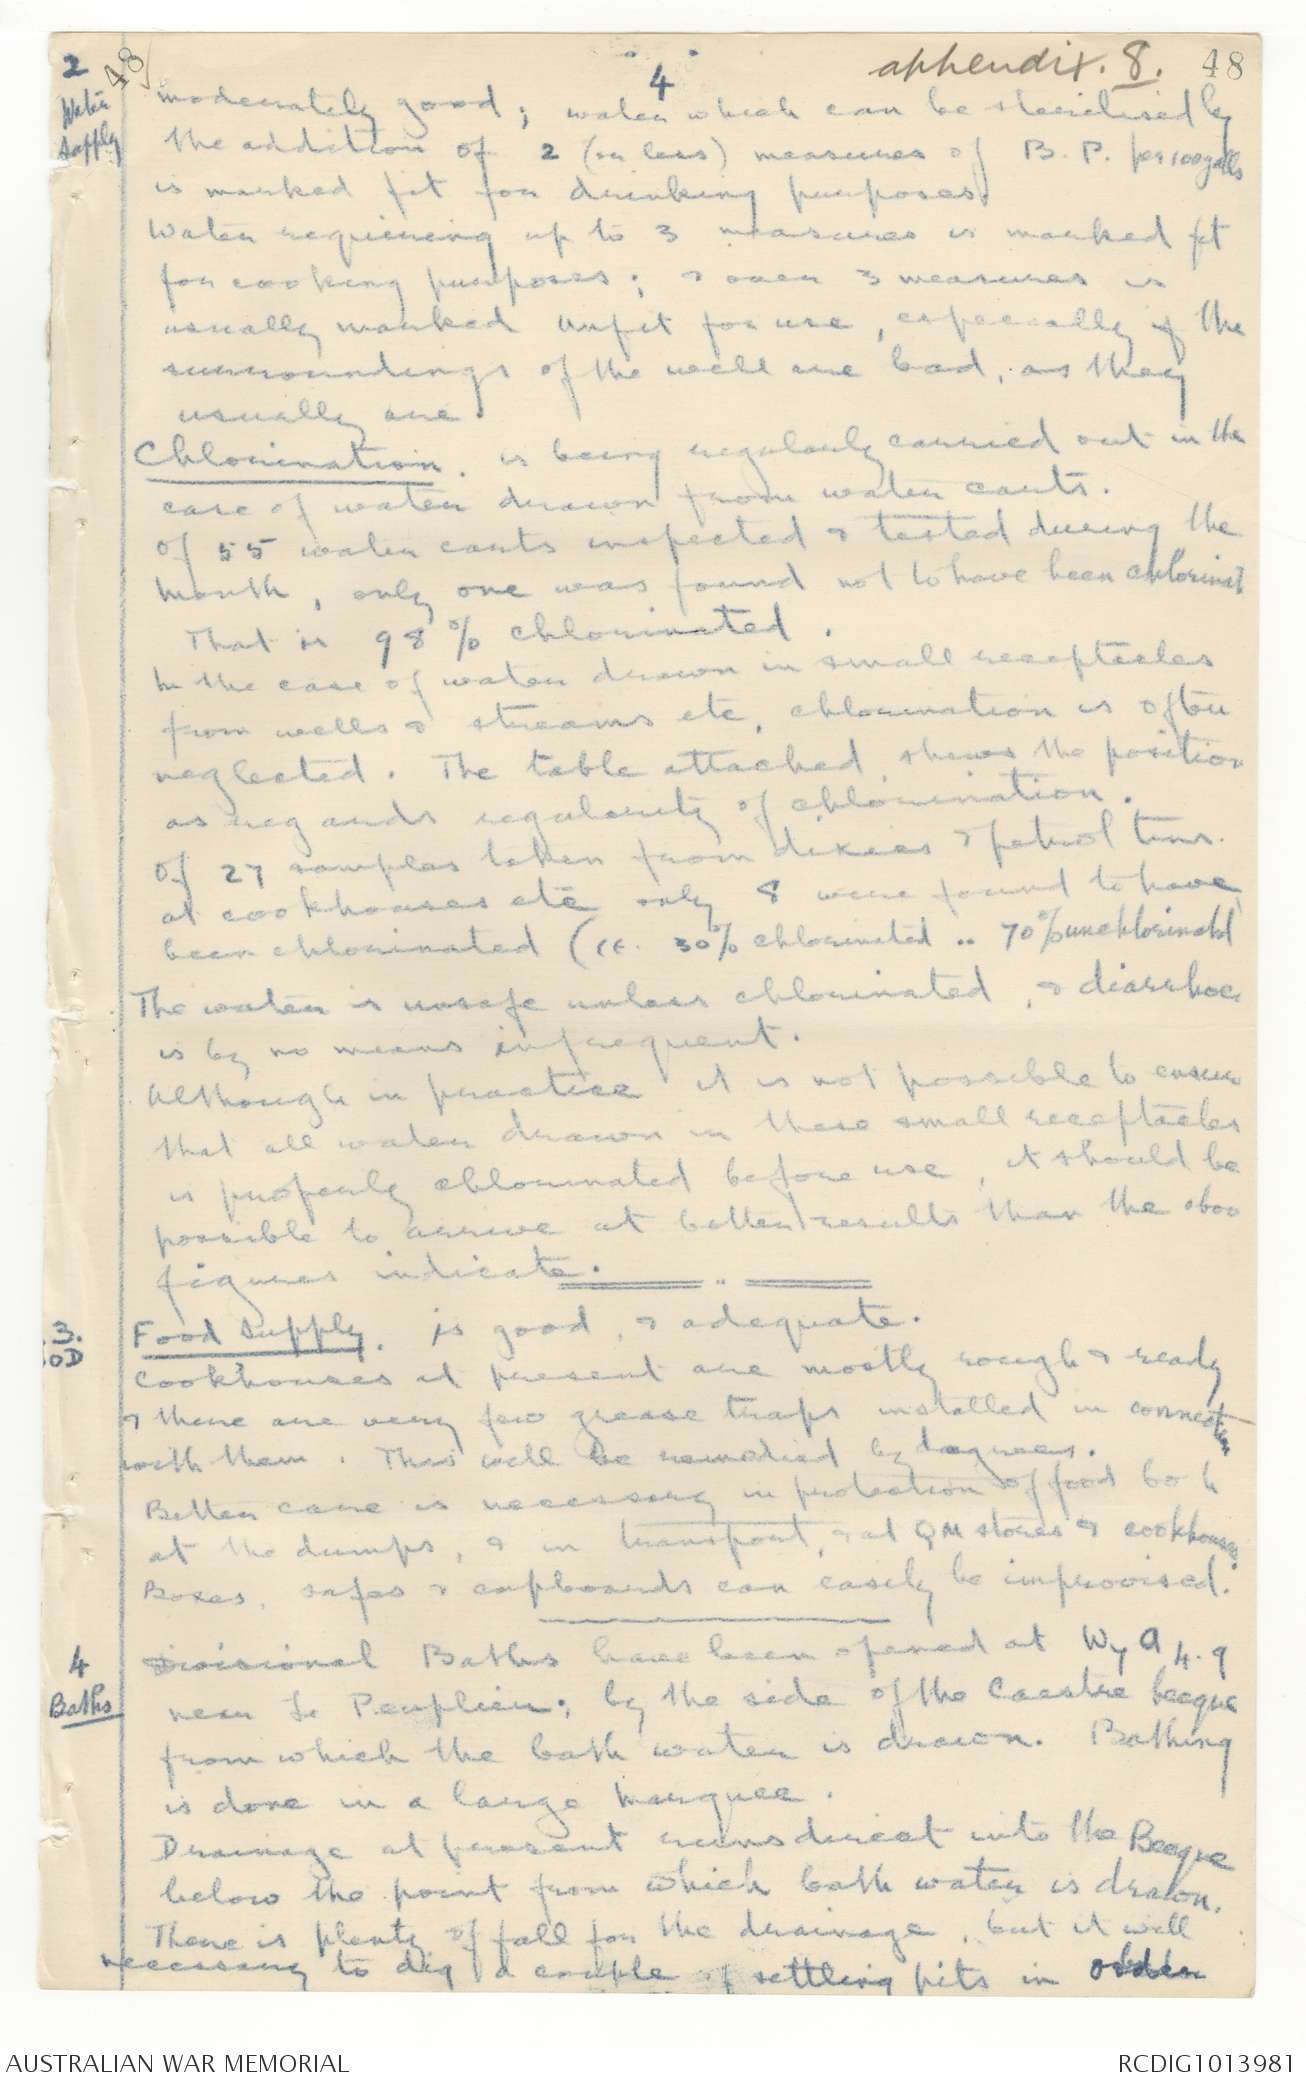 4
appendix. 8. 48
48
2
Water
Supply
moderately good; water which can be sterilised by
the addition of 2 (or less) measures of B.P. per 100 galls
is marked fit for drinking purposes.
Water requiring up to 3 measures is marked fit
for cooking purposes; & over 3 measures is
usually marked unfit for use, especially if the
surroundings of the well are bad, as they
usually are.
Chlorination. is being regularly carried out in the
case of water drawn from water carts.
Of 55 water carts inspected & tested during the
month, only one was found not to have been chlorinat
That is 98% chlorinated.
In the case of water drawn in small receptacles
from wells & streams etc, chlorination is often
neglected. The table attached, shews the position
as regards regularity of chlorination.
Of 27 samples taken from dixies & petrol tins.
at cookhouses etc only 8 were found to have
been chlorinated (i.e. 30% chlorinated .. 70% unchlorinated
The water is unsafe unless chlorinated, & diarrhoe
is by no means infrequent.
Although in practice it is not possible to ensur
that all water drawn in these small receptacles
is properly chlorinated before use, it should be
possible to arrive at better results than the abov
figures indicate.
3.
OD
Food Supply. is good, & adequate.
Cookhouses at present are mostly rough & ready
& there are very few grease traps installed in connection
with them. This will be remedied by degrees.
Better care is necessary in protection of food both
at the dumps, & in transport, & at QM stores & cookhouses.
Boxes, safes & cupboards can easily be improvised.
4
Baths
Divisional Baths have been opened at W 9 a 4.9
near Le Peuplier; by the side of the Caestre becque
from which the bath water is drawn. Bathing
is done in a large marquee.
Drainage at present runs direct into the Becque
below the point from which bath water is drawn.
There is plenty of fall for the drainage, but it will
necessary to dig a couple of settling pits in order
AUSTRALIAN WAR MEMORIAL
RCDIG1013981